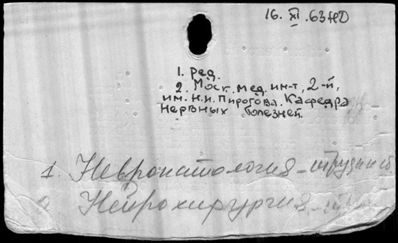 16. XI. 63 НО
1. ред.
2. Моск. мед. ин-т, 2-й,
им. Н.И. Пирогова. Кафедра
нервных болезней.
1. Невропатология - труды и сб
2. Нейрохирургия -